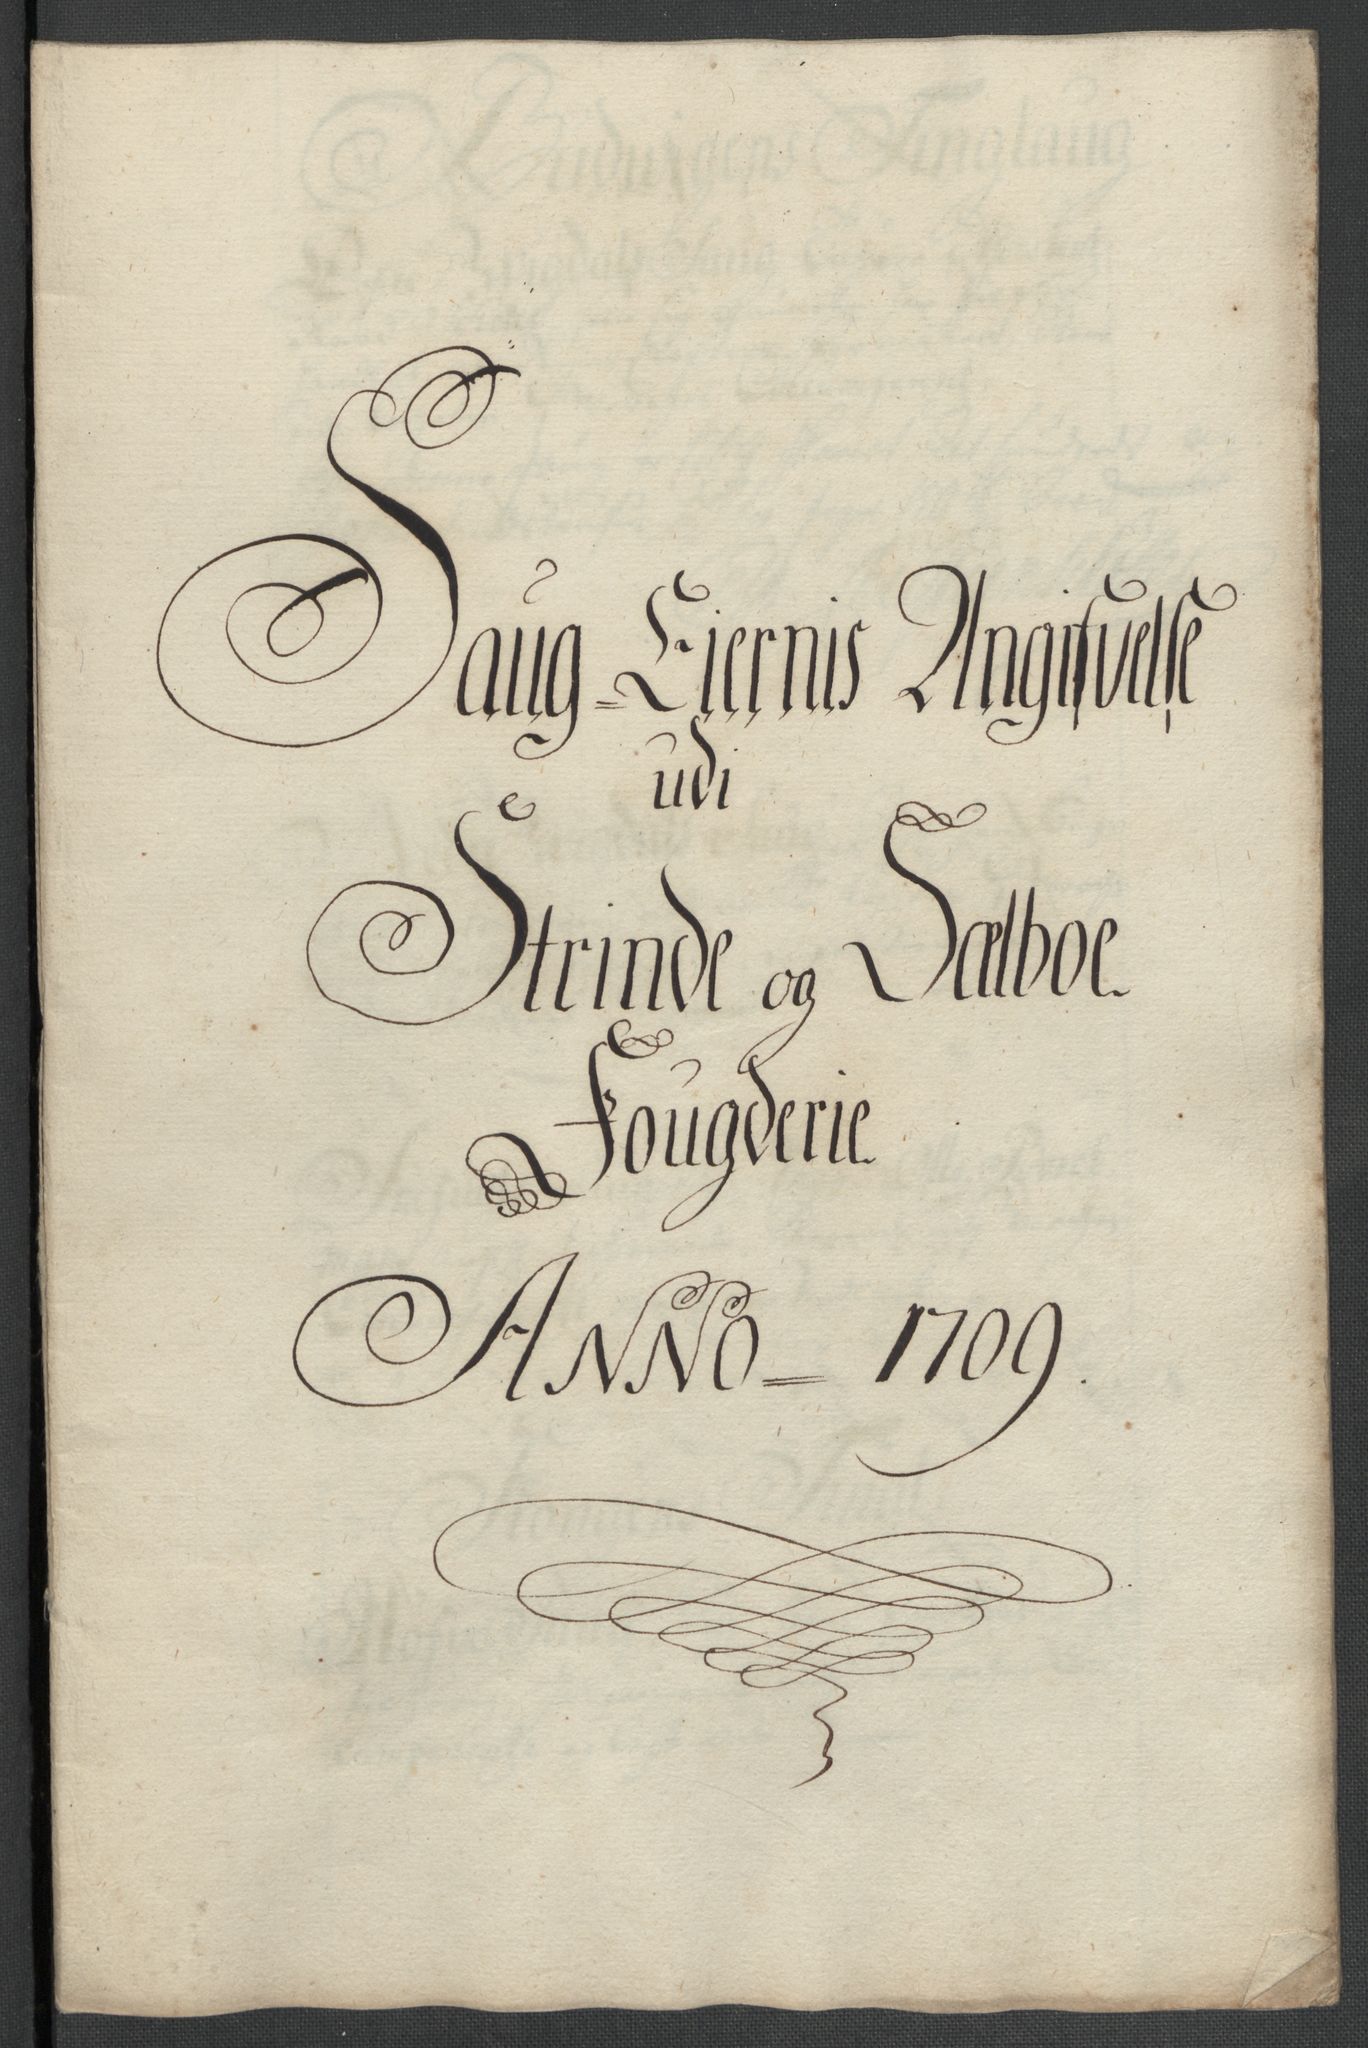 Saug-Eiernis Angifvelse
udi
Strinde og Sælboe.
Fougderie.
ANNO - 1709.